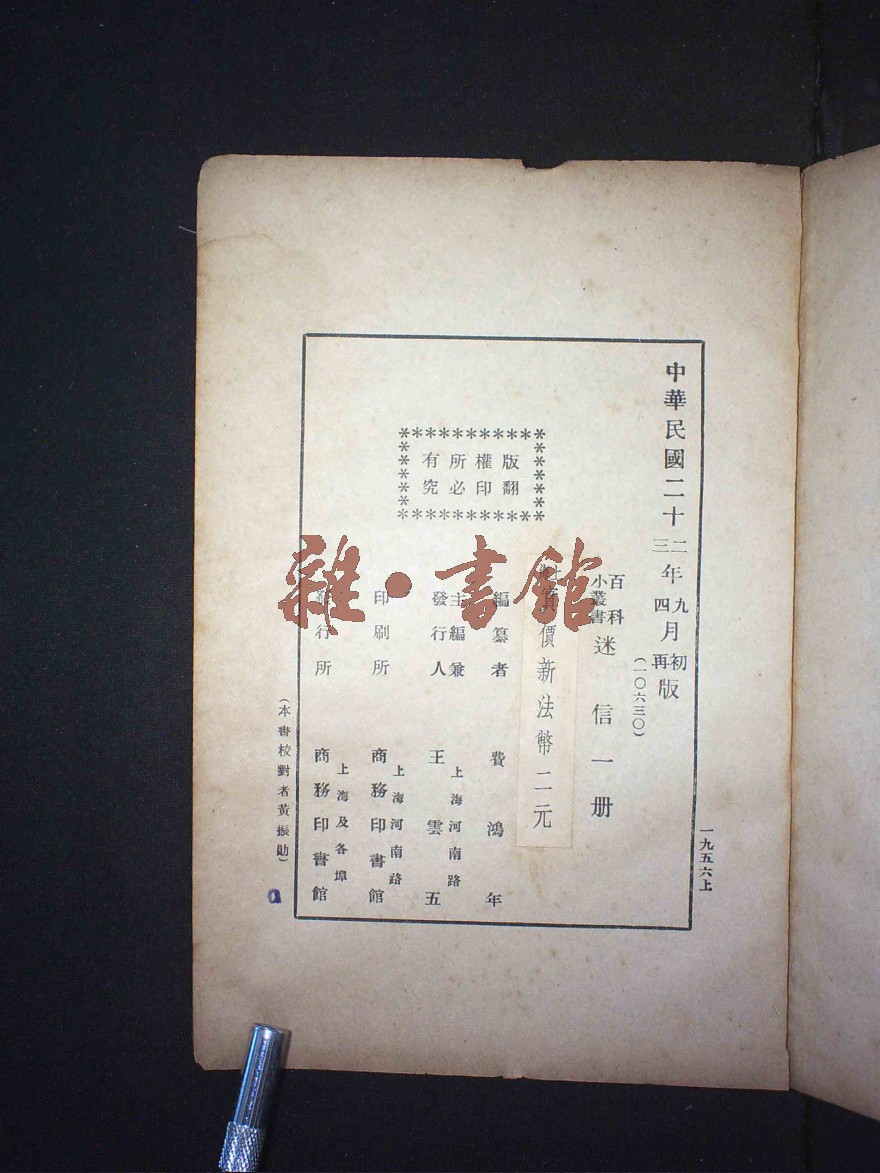 中華民國二十二年九月初版
三 四 再
(一〇六三〇)
百科
小叢書
迷信一册
實價新法幣二元
編纂者 費鴻年
主編兼
發行人
上海河南路
王雲五
印刷所
上海河南路
商務印書館
發行所
上海及各埠
商務印書館
版權所有
翻印必究
(本書校對者黃振勛)
一九五六上
雜·書館